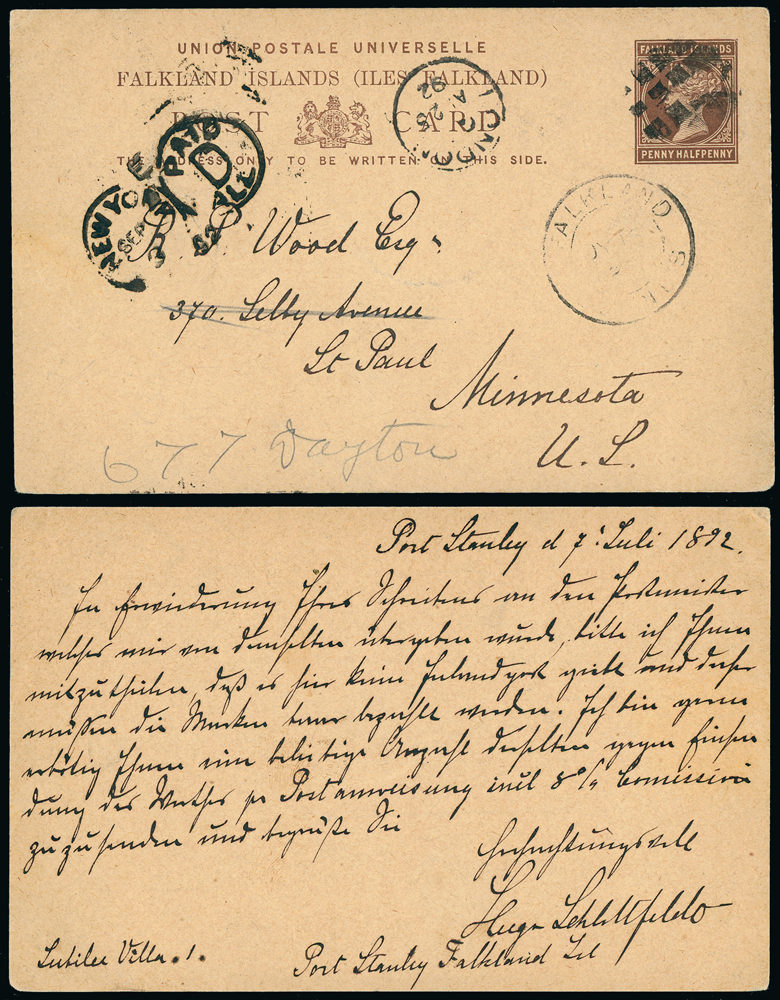 UNION POSTALE UNIVERSELLE
FALKLAND ISLANDS (ILES FALKLAND)
POST CARD
THE ADDRESS ONLY TO BE WRITTEN ON THIS SIDE.
FALKLAND ISLANDS
PENNY HALFPENNY
LONDON
A
28
92
NEW YORK
SEP
PAID
D
ALL
92
FALKLAND ISL
Wood Esq.
370. Selby Avenue
St Paul
Minnesota
U. S.
677 Dayton
Port Stanley d 7. Juli 1892.
In Erwiederung Ihres Schreibens an den Postmeister
welches mir von demselben übergeben wurde, bitte ich Ihnen
mitzutheilen, daß es hier keine Inlandpost giebt und daher
müssen die Marken teuer bezahlt werden. Ich bin gerne
erbötig Ihnen eine beliebige Anzahl derselben gegen Einsen
dung des Werthes per Postanweisung incl 8% Comission
zuzusenden und begrüße Sie
Hochachtungsvoll
Hugo Schlottfeldt
Jubilee Villa. 1.
Port Stanley Falkland Isl